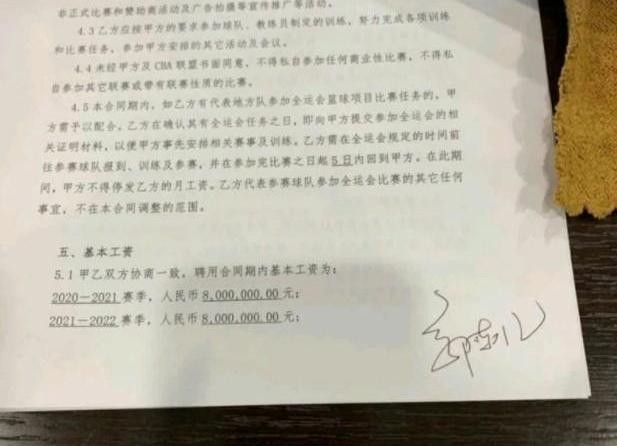 非正式比赛和赞助商活动及广告拍摄等宣传推广等活动。
4.3乙方应按甲方的要求参加球队、教练员制定的训练，努力完成各项训
练和比赛任务，参加甲方安排的其它活动及会议。
4.4未经甲方及CBA联盟书面同意，不得私自参加任何商业性比赛，不得私
自参加其它联赛或带有联赛性质的比赛。
4.5本合同期内，如乙方有代表地方队参加全运会篮球项目比赛任务的，甲
方需予以配合。乙方在确认其有全运会任务之日，即向甲方提交参加全运会的相
关证明材料，以便甲方事先安排相关赛事及训练。乙方需在全运会规定的时间前
往参赛球队报到、训练及参赛，并在参加完比赛之日起5日内回到甲方。在此期
间，甲方不得停发乙方的月工资。乙方代表参赛球队参加全运会比赛的其它任何
事宜，不在本合同调整的范围。
五、基本工资
5.1甲乙双方协商一致，聘用合同期内基本工资为：
2020－2021赛季，人民币8,000,000.00元；
2021－2022赛季，人民币8,000,000.00元；